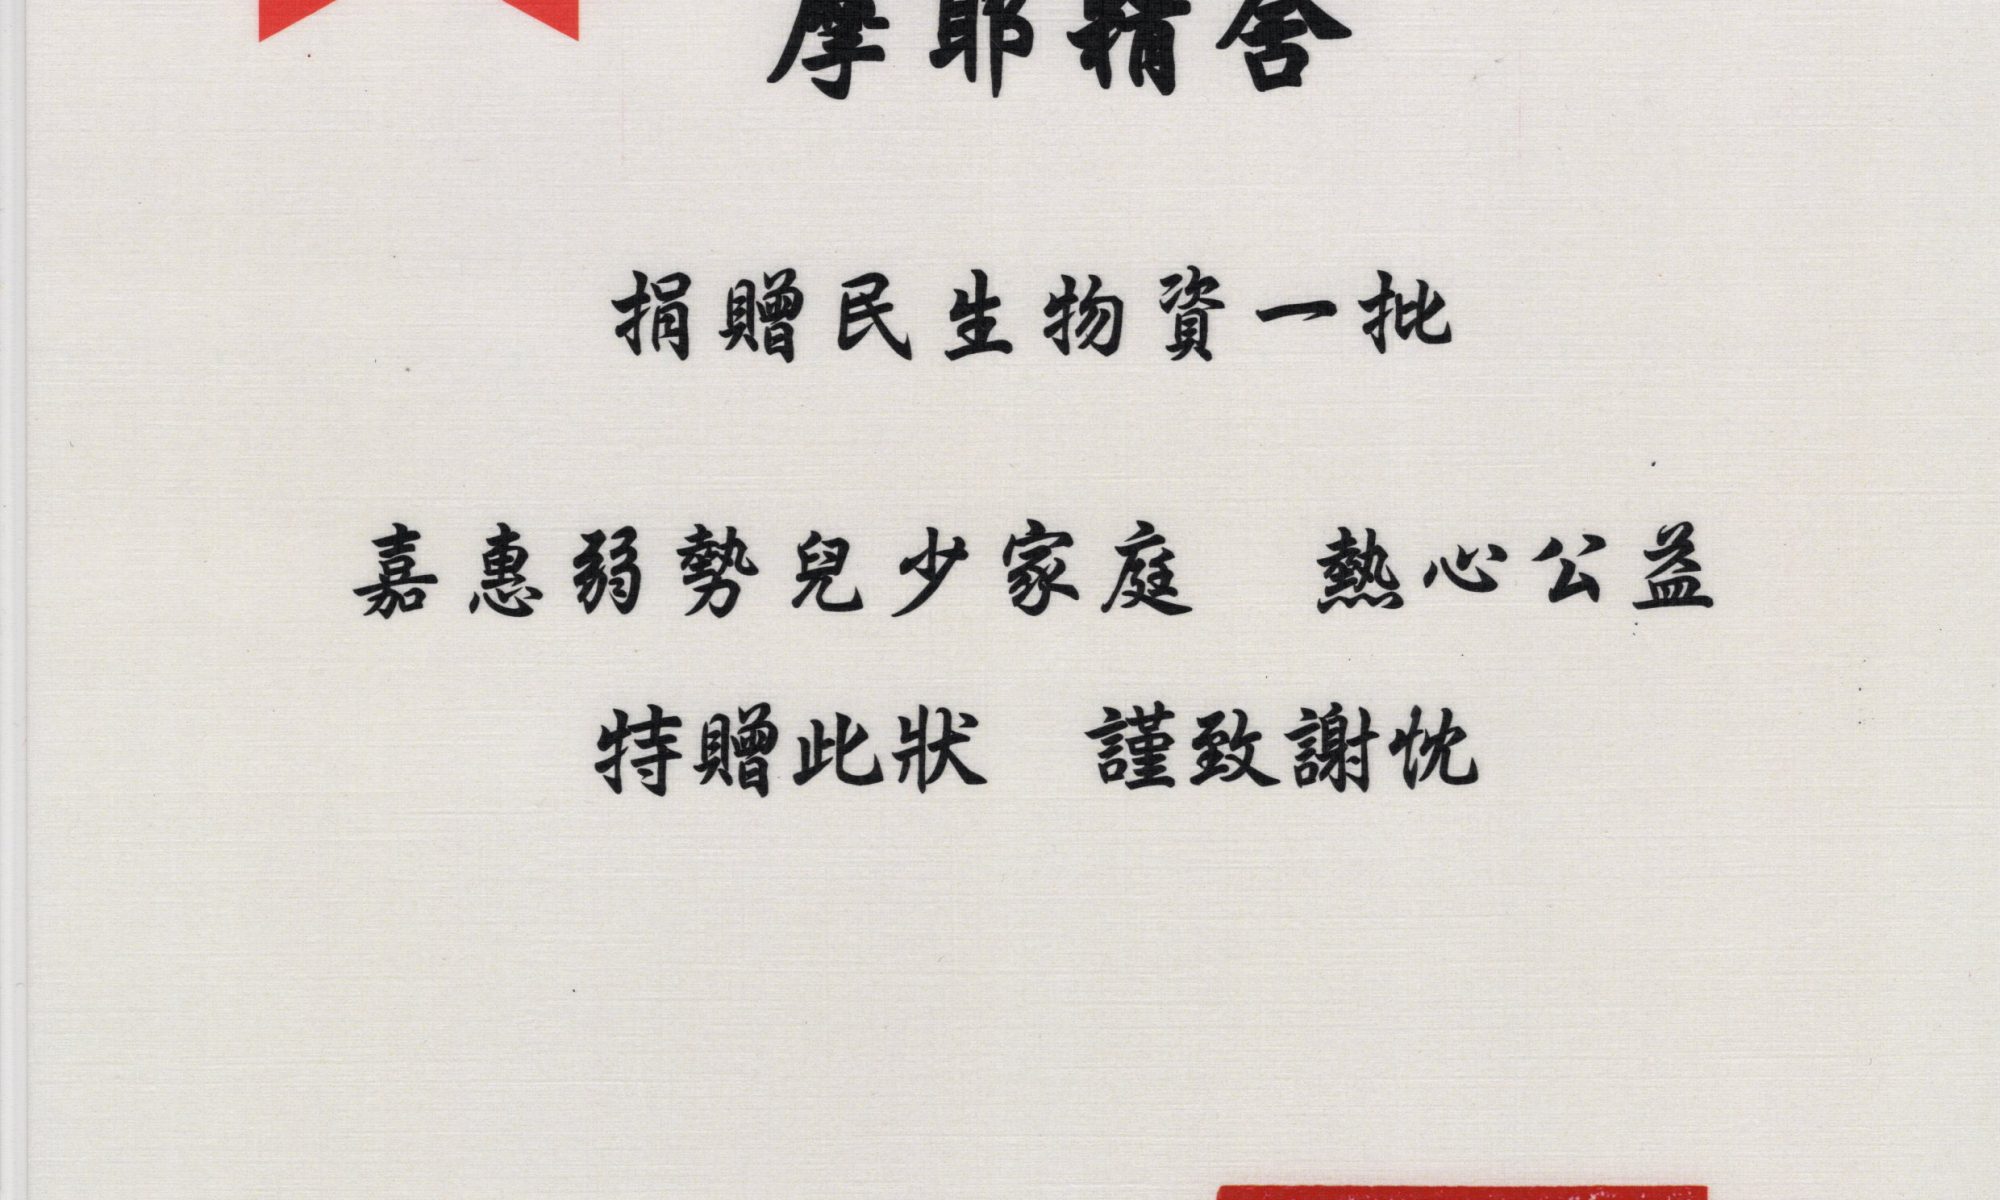 摩耶精舍
捐贈民生物資一批
嘉惠弱勢兒少家庭　熱心公益
特贈此狀　謹致謝忱